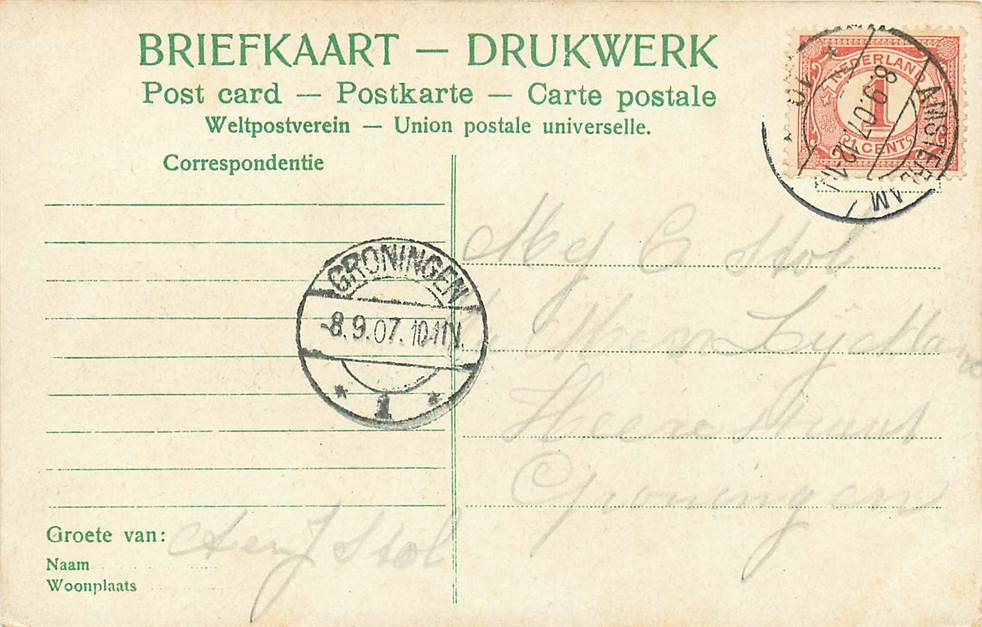 BRIEFKAART — DRUKWERK
Post card — Postkarte — Carte postale
Weltpostverein — Union postale universelle.
Correspondentie
NEDERLAND
1
CENT
AMSTERDAM
8.9.07
GRONINGEN
-8.9.07. 10-11N.
* 1 *
Mej C Stol
Heerestraat
Groningen
Groete van: A en J Stol
Naam
Woonplaats